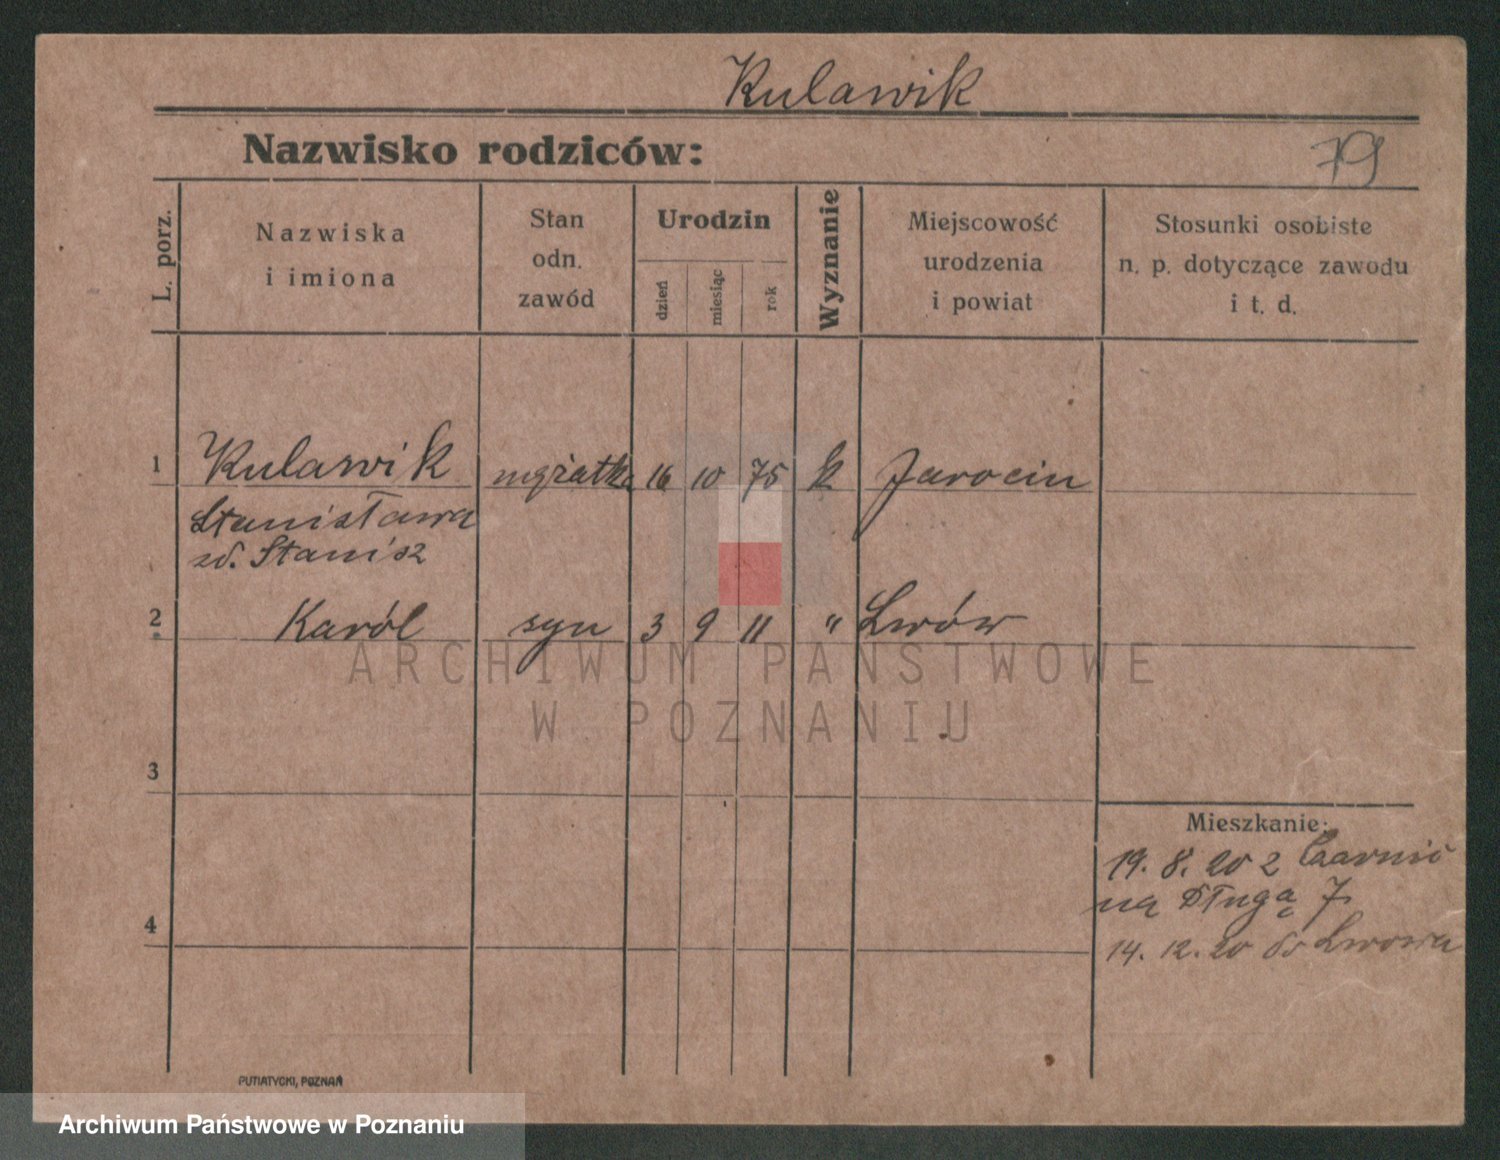 Kulawik
Nazwisko rodziców:
79
L. porz.
Nazwiska
i imiona
Stan
odn.
zawód
Urodzin
dzień
miesiąc
rok
Wyznanie
Miejscowość
urodzenia
i powiat
Stosunki osobiste
n. p. dotyczące zawodu
i t. d.
1 Kulawik mężatka 16 10 75 k Jarocin
Stanisława
zd. Stanisz
2 Karól syn 3 9 11 " Lwów
3
4
Mieszkanie:
19. 8. 20 z
na Długą 7.
14. 12. 20 do Lwowa
PUTIATYCKI, POZNAŃ
ARCHIWUM PAŃSTWOWE
W POZNANIU
Archiwum Państwowe w Poznaniu